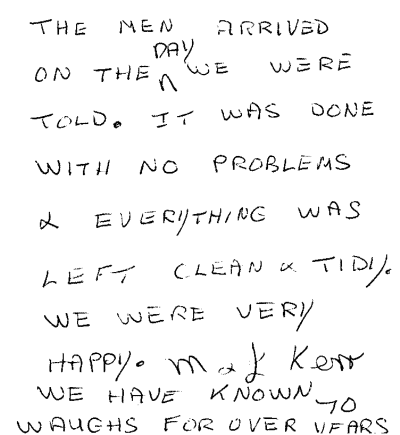 THE MEN ARRIVED
ON THE DAY WE WERE
TOLD. IT WAS DONE
WITH NO PROBLEMS
& EVERYTHING WAS
LEFT CLEAN & TIDY.
WE WERE VERY
HAPPY. M & J Kerr
WE HAVE KNOWN
WAUGHS FOR OVER 70 YEARS